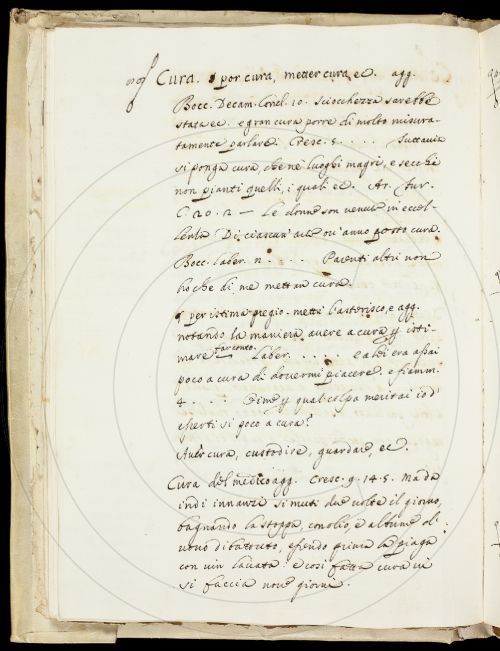 Cura. § por cura, metter cura, ec. agg.
Bocc. Decam. Concl. 10. sciocchezza sarebbe
stata ec. e gran cura porre di molto misura-
tamente parlare. Cresc. 5. . . . . . Tuttavia
si ponga cura, che ne' luoghi magri, e secchi
non pianti quelli, i quali ec. Ar. Fur.
C. 20. 2 — Le donne son venute in eccel-
lenza Di ciascun' arte ov' anno posto cura.
Bocc. laber. n. . . . . Parenti altri non
ho che di me mettan cura.
§ per istima pregio - metti l'asterisco, e agg.
notando la maniera avere a cura p isti-
mare far conto. Laber. . . . . . e a lei era assai
poco a cura di dovermi piacere. e fiamm.
4. . . . Dime p qual colpa meritai io d'
esserti sì poco a cura?
Aver cura, custodire, guardare, ec.
Cura del medico agg. Cresc. 9. 14. 5. Ma da
indi innanzi si muti due volte il giorno,
bagnando la stoppa, con olio, e albume d'
uovo dibatuto, essendo prima la piaga
con vin lavata: e così fatta cura vi
si faccia nove giorni.